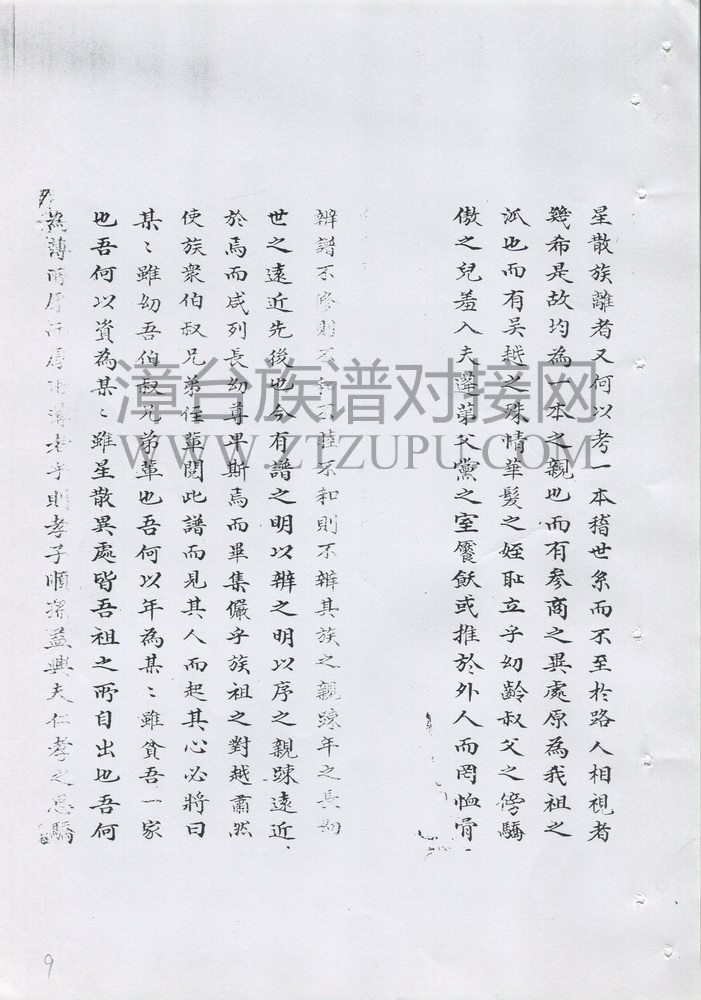 星散族離者又何以考一本稽世系而不至於路人相視者
幾希是故均為一本之親也而有參商之異處原為我祖之
派也而有吳越之殊情華髮之姪恥立乎幼齡叔父之傍驕
傲之兒羞入夫遜弟父黨之室饜飫或推於外人而罔恤骨
辦譜不修則不和不睦不和則不辦其族之親踈年之長幼
世之遠近先後也今有譜之明以辦之明以序之親踈遠近
於焉而咸列長幼尊卑斯焉而畢集儼乎族祖之對越肅然
使族衆伯叔兄弟侄輩閱此譜而見其人而起其心必將曰
某〻雖幼吾伯叔兄弟輩也吾何以年為某〻雖貧吾一家
也吾何以資為某〻雖星散異處皆吾祖之所自出也吾何
為薄所厚所厚者乎則孝子順孫益興夫仁孝之思驕
漳台族谱对接网
WWW.ZTZUPU.COM
9